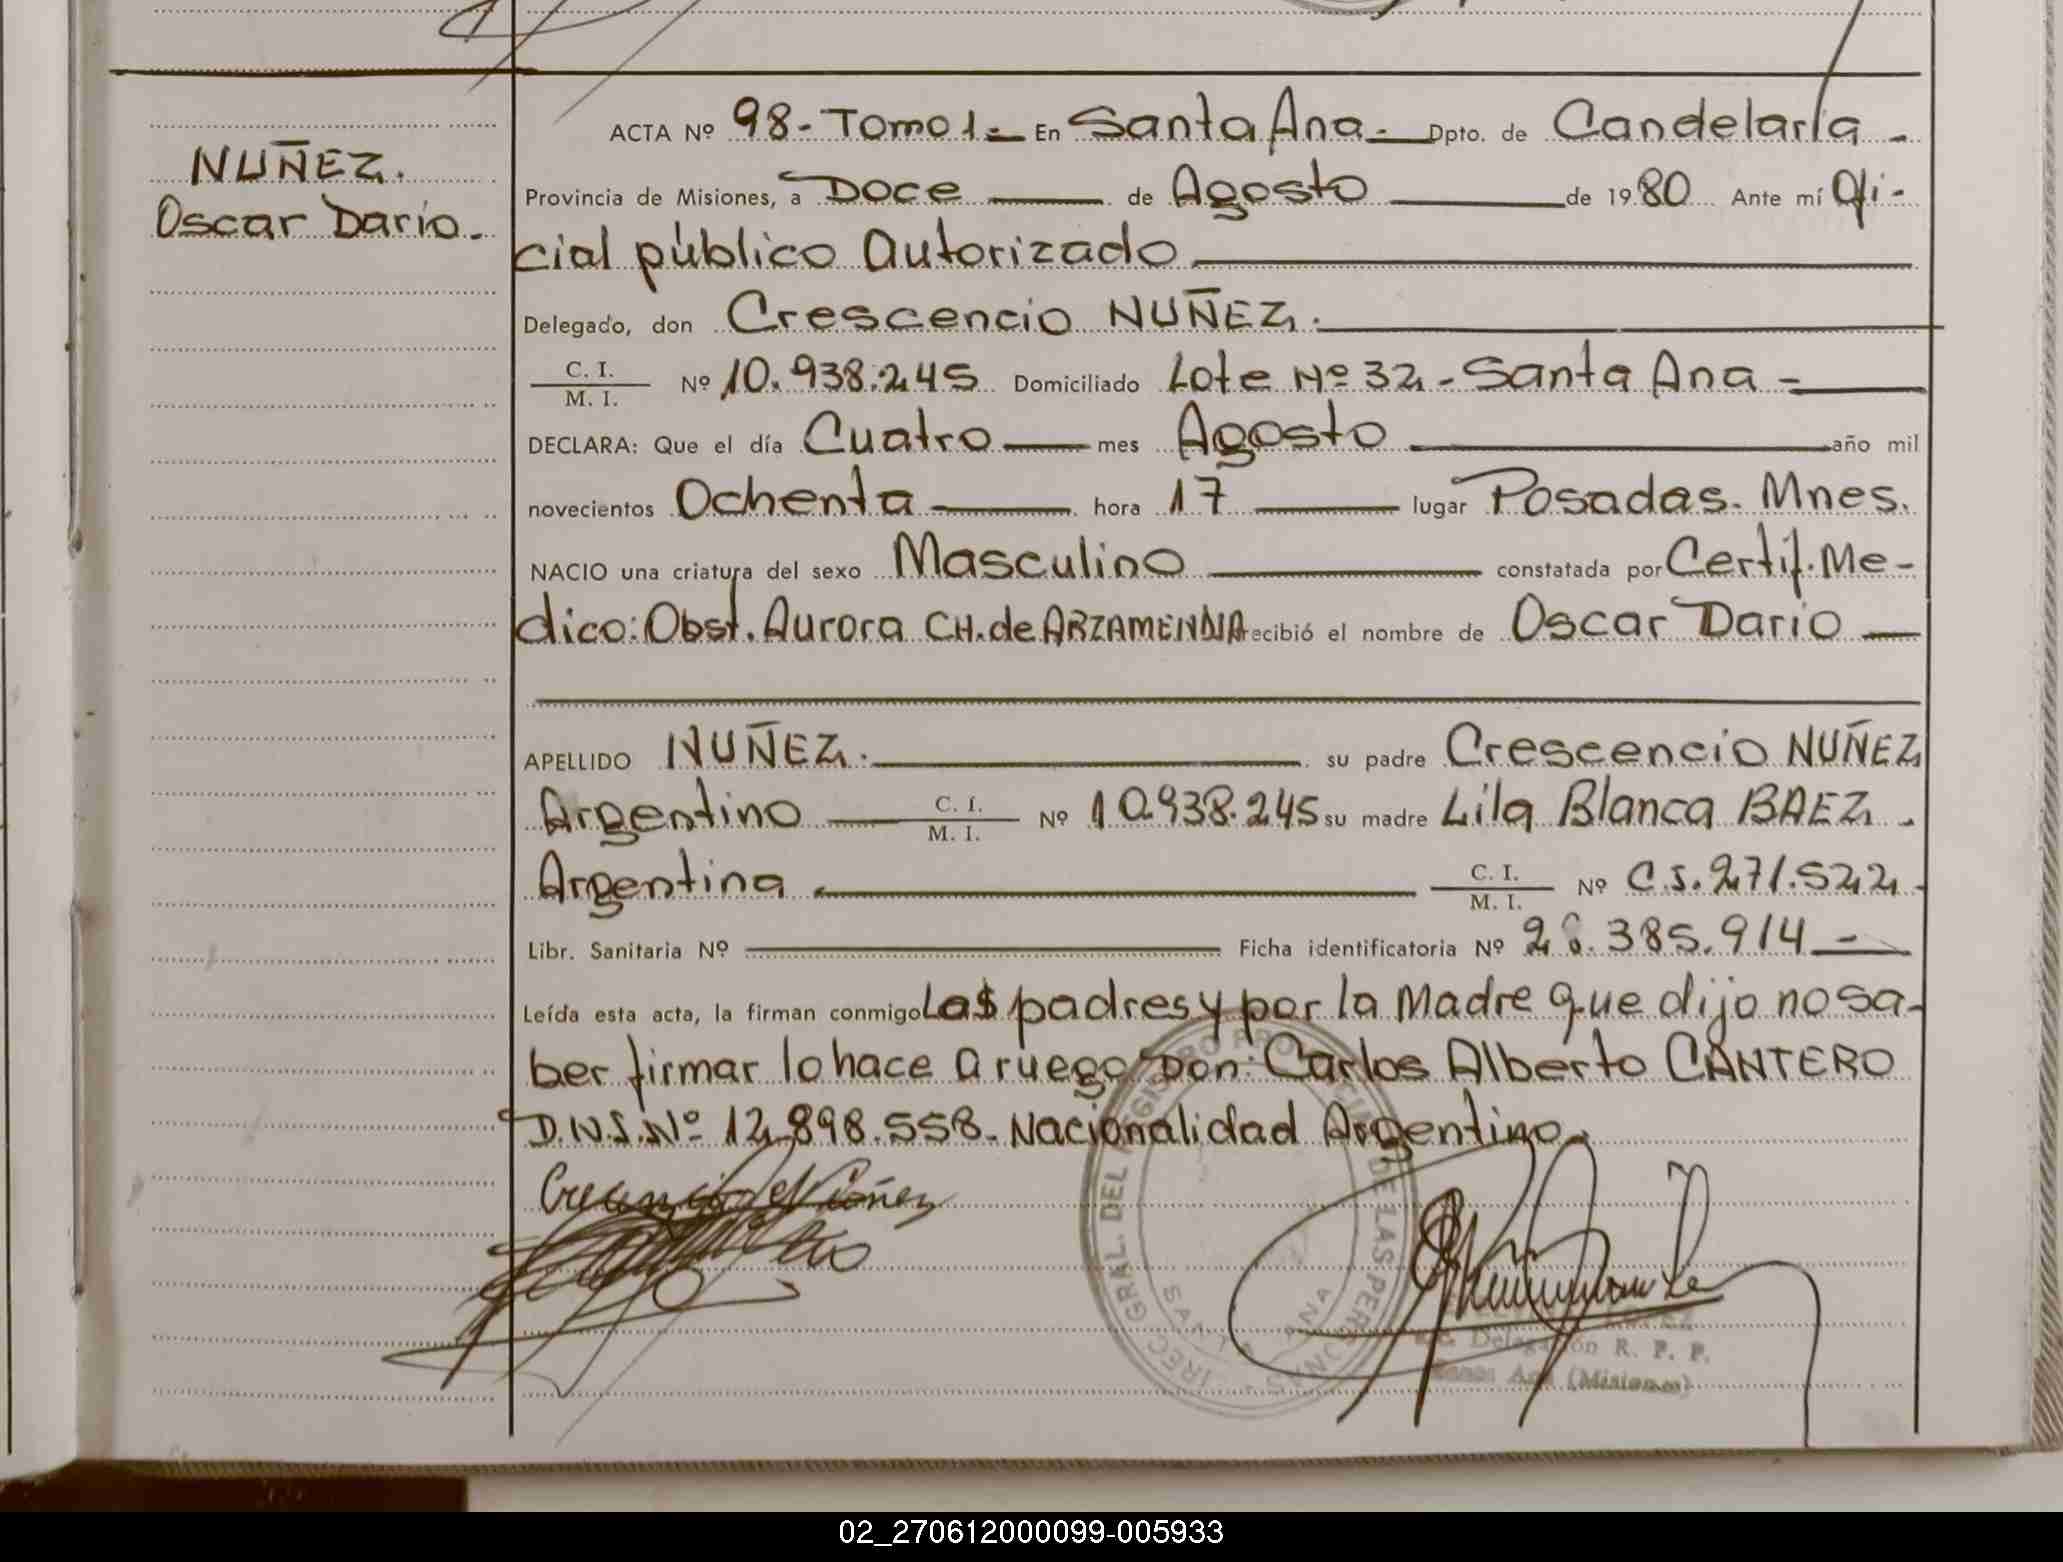 NUÑEZ.
Oscar Darío.
ACTA Nº 98- Tomo 1.- En Santa Ana.- Dpto. de Candelaria -
Provincia de Misiones, a Doce de Agosto de 1980 Ante mí Ofi-
cial público Autorizado
Delegado, don Crescencio NUÑEZ.
C. I.
M. I.
Nº 10.938.245 Domiciliado Lote Nº 32.- Santa Ana -
DECLARA: Que el día Cuatro mes Agosto año mil
novecientos Ochenta hora 17 lugar Posadas. Mnes.
NACIO una criatura del sexo Masculino constatada por Certif. Me-
dico: Obst. Aurora CH. de ARZAMENDIA recibió el nombre de Oscar Darío
APELLIDO NUÑEZ. su padre Crescencio NUÑEZ
Argentino C. I. M. I. Nº 10.938.245 su madre Lila Blanca BAEZ.
Argentina C. I. M. I. Nº C.I. 271.522.
Libr. Sanitaria Nº Ficha identificatoria Nº 28.385.914 -
Leída esta acta, la firman conmigo Los padres y por la Madre que dijo no sa-
ber firmar lo hace a ruego Don: Carlos Alberto CANTERO
D.N.I. Nº 12.898.558. Nacionalidad Argentino.
Crescencio Núñez
GRAL. DEL REGISTRO PROVINCIAL DE LAS PERSONAS
SANTA ANA
Delegación R. P. P.
Santa Ana (Misiones)
02_270612000099-005933